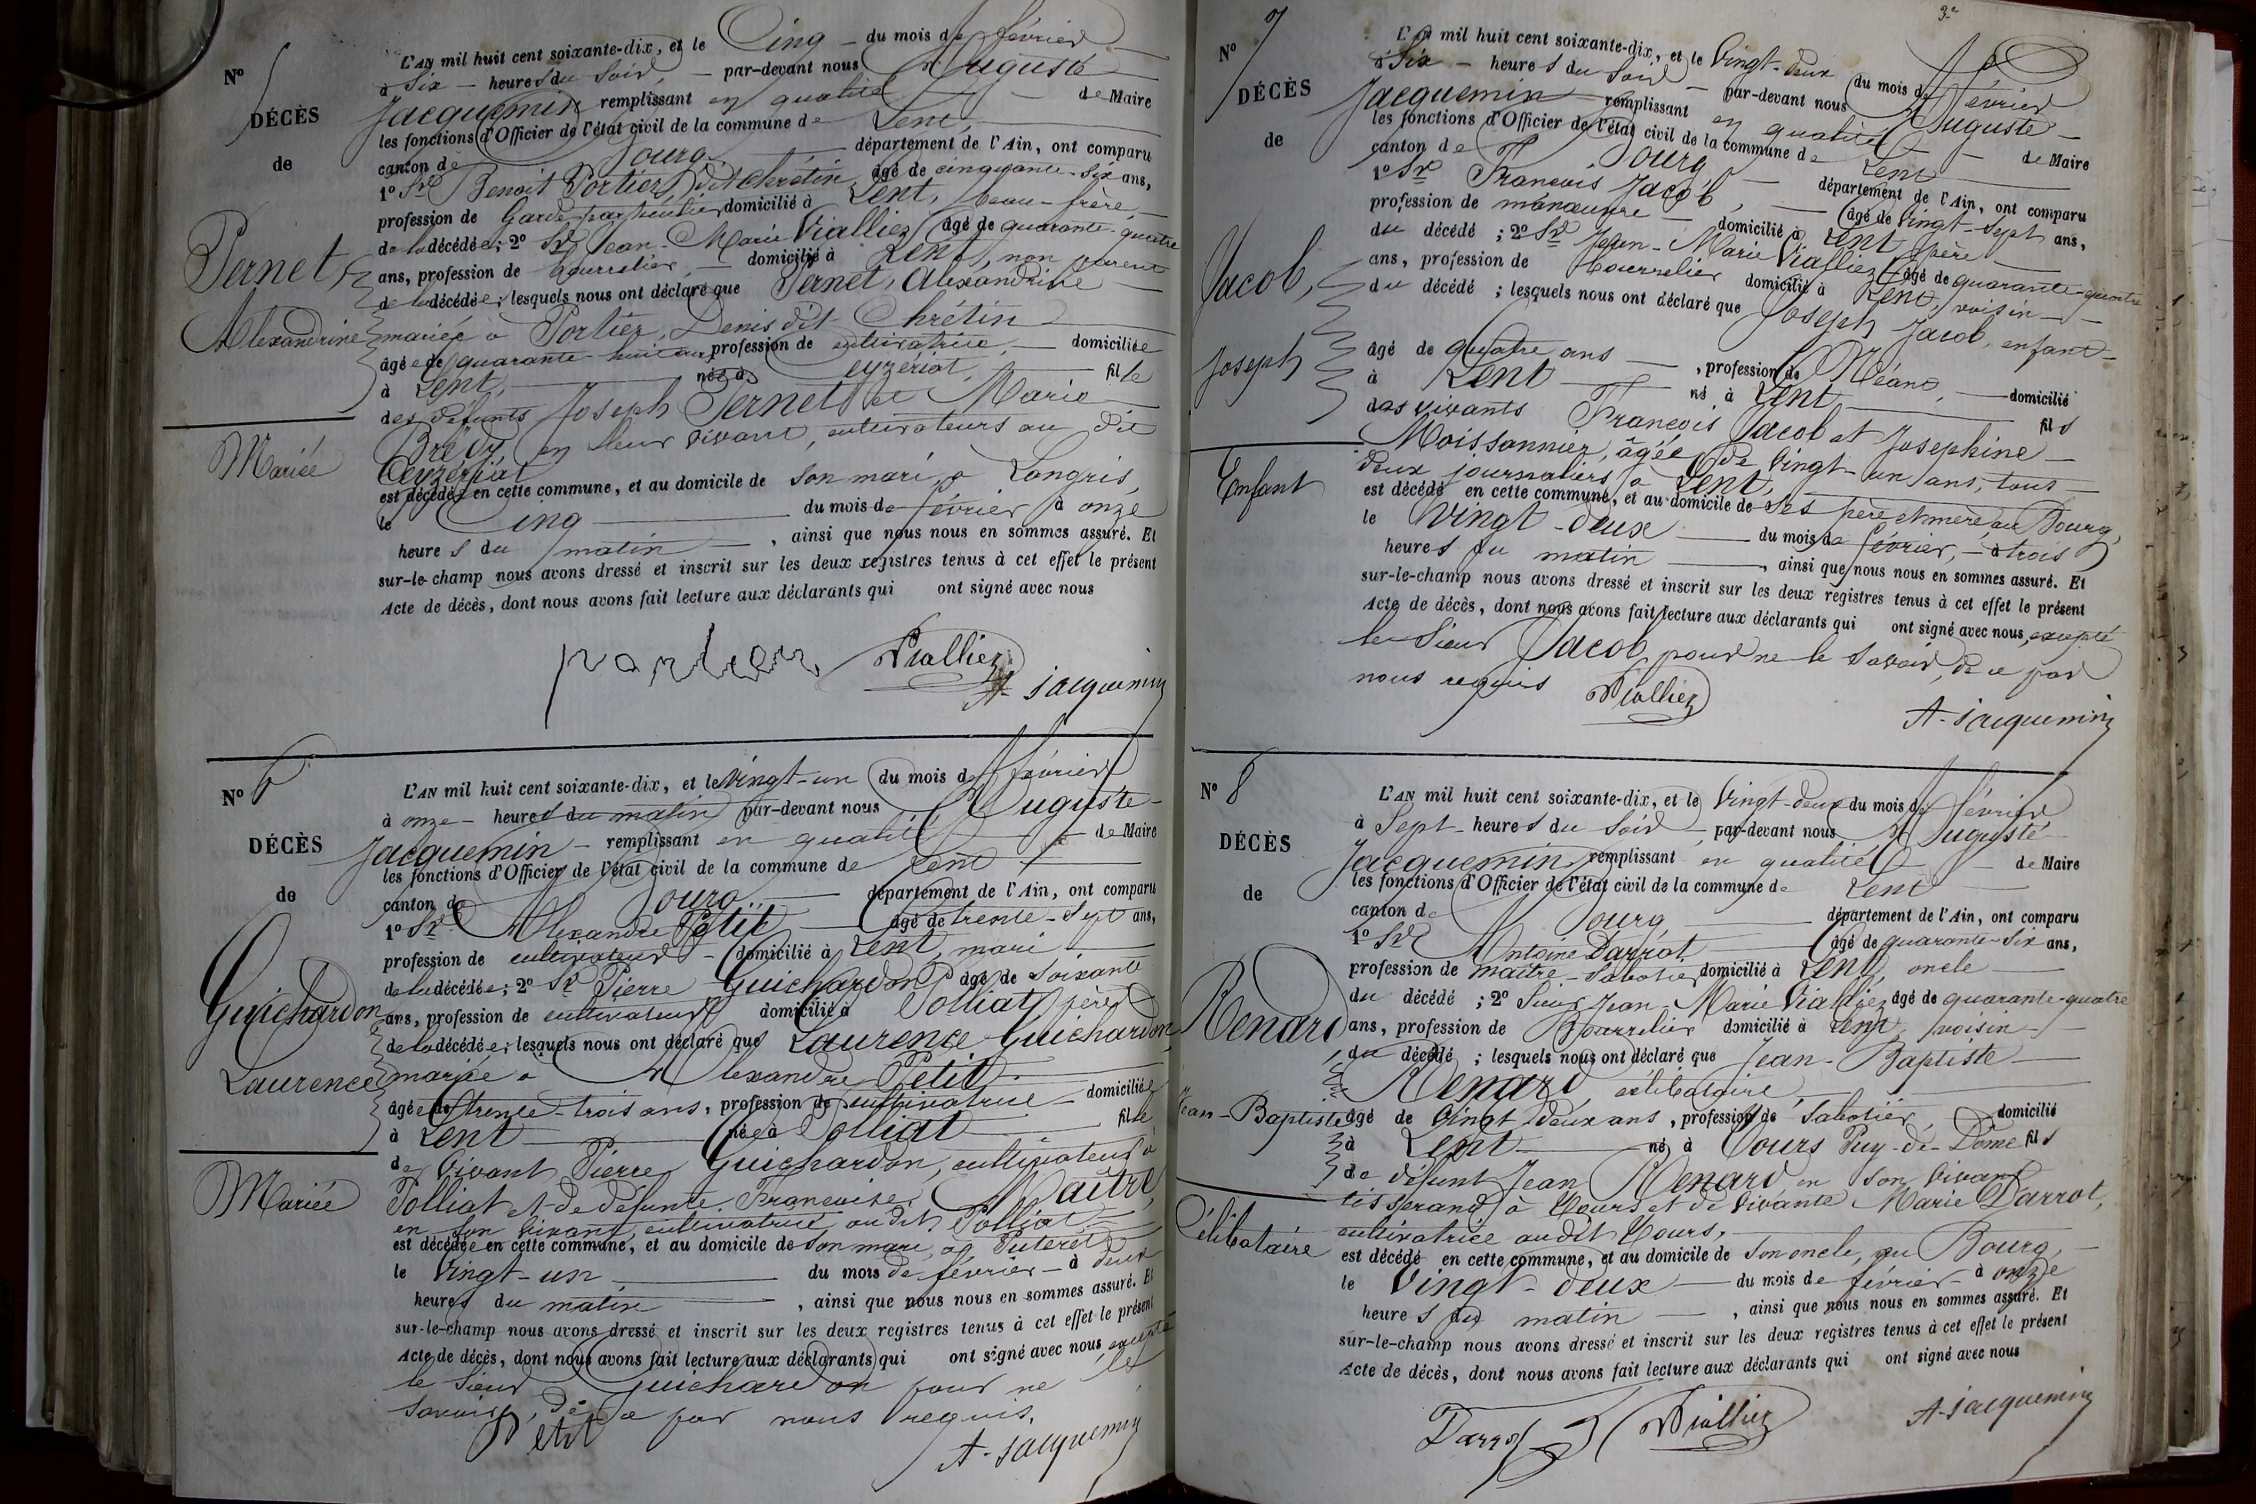 No 5
DÉCÈS
de
Pernet
Alexandrine
Mariée
L'AN mil huit cent soixante-dix, et le Cinq du mois de février
à Six heures du Soir, par-devant nous Auguste
Jacquemin remplissant en qualité de Maire
les fonctions d'Officier de l'état civil de la commune de Lent,
canton de Bourg département de l'Ain, ont comparu
1º Sr Benoit Portier, dit Chrétin âgé de cinquante-six ans,
profession de Garde particulier domicilié à Lent, beau-frère
de la décédée; 2º Sr Jean-Marie Vialliez âgé de quarante-quatre
ans, profession de bourrelier, domicilié à Lent, non parent
de la décédée; lesquels nous ont déclaré que Pernet, Alexandrine
mariée à Portier, Denis dit Chrétin
âgée de quarante-huit ans, profession de cultivatrice, domiciliée
à Lent, née à Ceyzériat, fille
des défunts Joseph Pernet et Marie
Bredy, en leur vivant, cultivateurs au dit
Ceyzériat
est décédée en cette commune, et au domicile de son mari, à Longris,
le Cinq du mois de février à onze
heures du matin, ainsi que nous nous en sommes assuré. Et
sur-le-champ nous avons dressé et inscrit sur les deux registres tenus à cet effet le présent
Acte de décès, dont nous avons fait lecture aux déclarants qui ont signé avec nous
portier Vialliez
A. jacquemin
No 6
DÉCÈS
de
Guichardon
Laurence
Mariée
L'AN mil huit cent soixante-dix, et le vingt-un du mois de février
à onze heures du matin par-devant nous Auguste
Jacquemin remplissant en qualité de Maire
les fonctions d'Officier de l'état civil de la commune de Lent
canton de Bourg département de l'Ain, ont comparu
1º Sr Alexandre Petit âgé de trente-sept ans,
profession de cultivateur domicilié à Lent, mari
de la décédée; 2º Sr Pierre Guichardon âgé de soixante
ans, profession de cultivateur domicilié à Polliat, père
de la décédée; lesquels nous ont déclaré que Laurence Guichardon,
mariée à Alexandre Petit
âgée de trente-trois ans, profession de cultivatrice domiciliée
à Lent née à Polliat fille
de vivant Pierre Guichardon, cultivateur à
Polliat et de défunte Françoise Maître,
en son vivant, cultivatrice au dit Polliat
est décédée en cette commune, et au domicile de son mari, à Puteret
le Vingt-un du mois de février à deux
heures du matin, ainsi que nous nous en sommes assuré. Et
sur-le-champ nous avons dressé et inscrit sur les deux registres tenus à cet effet le présent
Acte de décès, dont nous avons fait lecture aux déclarants qui ont signé avec nous, excepté
le Sieur Guichardon pour ne le
savoir, de ce par nous requis.
Petit A. jacquemin
3e
No 7
DÉCÈS
de
Jacob,
Joseph
Enfant
L'AN mil huit cent soixante-dix, et le Vingt-deux du mois de février
à Six heures du Soir par-devant nous Auguste
Jacquemin remplissant en qualité de Maire
les fonctions d'Officier de l'état civil de la commune de Lent
canton de Bourg département de l'Ain, ont comparu
1º Sr François Jacob, âgé de Vingt-sept ans,
profession de manœuvre domicilié à Lent, père
du décédé; 2º Sr Jean-Marie Vialliez âgé de quarante-quatre
ans, profession de bourrelier domicilié à Lent, voisin
du décédé; lesquels nous ont déclaré que Joseph Jacob, enfant
âgé de quatre ans, profession de Néant, domicilié
à Lent né à Lent fils
des vivants François Jacob et Josephine
Moissonnier, âgée de Vingt-un ans, tous
deux journaliers à Lent,
est décédé en cette commune, et au domicile de ses père et mère, au Bourg,
le Vingt-deux du mois de février, à trois
heures du matin, ainsi que nous nous en sommes assuré. Et
sur-le-champ nous avons dressé et inscrit sur les deux registres tenus à cet effet le présent
Acte de décès, dont nous avons fait lecture aux déclarants qui ont signé avec nous, excepté
le Sieur Jacob pour ne le savoir, de ce par
nous requis Vialliez
A. jacquemin
No 8
DÉCÈS
de
Renard
Jean-Baptiste
Célibataire
L'AN mil huit cent soixante-dix, et le Vingt-deux du mois de février
à Sept heures du Soir par-devant nous Auguste
Jacquemin remplissant en qualité de Maire
les fonctions d'Officier de l'état civil de la commune de Lent
canton de Bourg département de l'Ain, ont comparu
1º Sr Antoine Darrot âgé de quarante-six ans,
profession de maître-sabotier domicilié à Lent, oncle
du décédé; 2º Sieur Jean-Marie Vialliez âgé de quarante-quatre
ans, profession de Bourrelier domicilié à Lent, voisin
du décédé; lesquels nous ont déclaré que Jean-Baptiste
Renard célibataire
âgé de Vingt deux ans, profession de Sabotier domicilié
à Lent né à Cours Puy-de-Dôme fils
de défunt Jean Renard en son vivant
tisserand à Cours et de vivante Marie Darrot,
cultivatrice au dit Cours,
est décédé en cette commune, et au domicile de son oncle, au Bourg,
le Vingt-deux du mois de février à onze
heures du matin, ainsi que nous nous en sommes assuré. Et
sur-le-champ nous avons dressé et inscrit sur les deux registres tenus à cet effet le présent
Acte de décès, dont nous avons fait lecture aux déclarants qui ont signé avec nous
Darrot Vialliez A. jacquemin